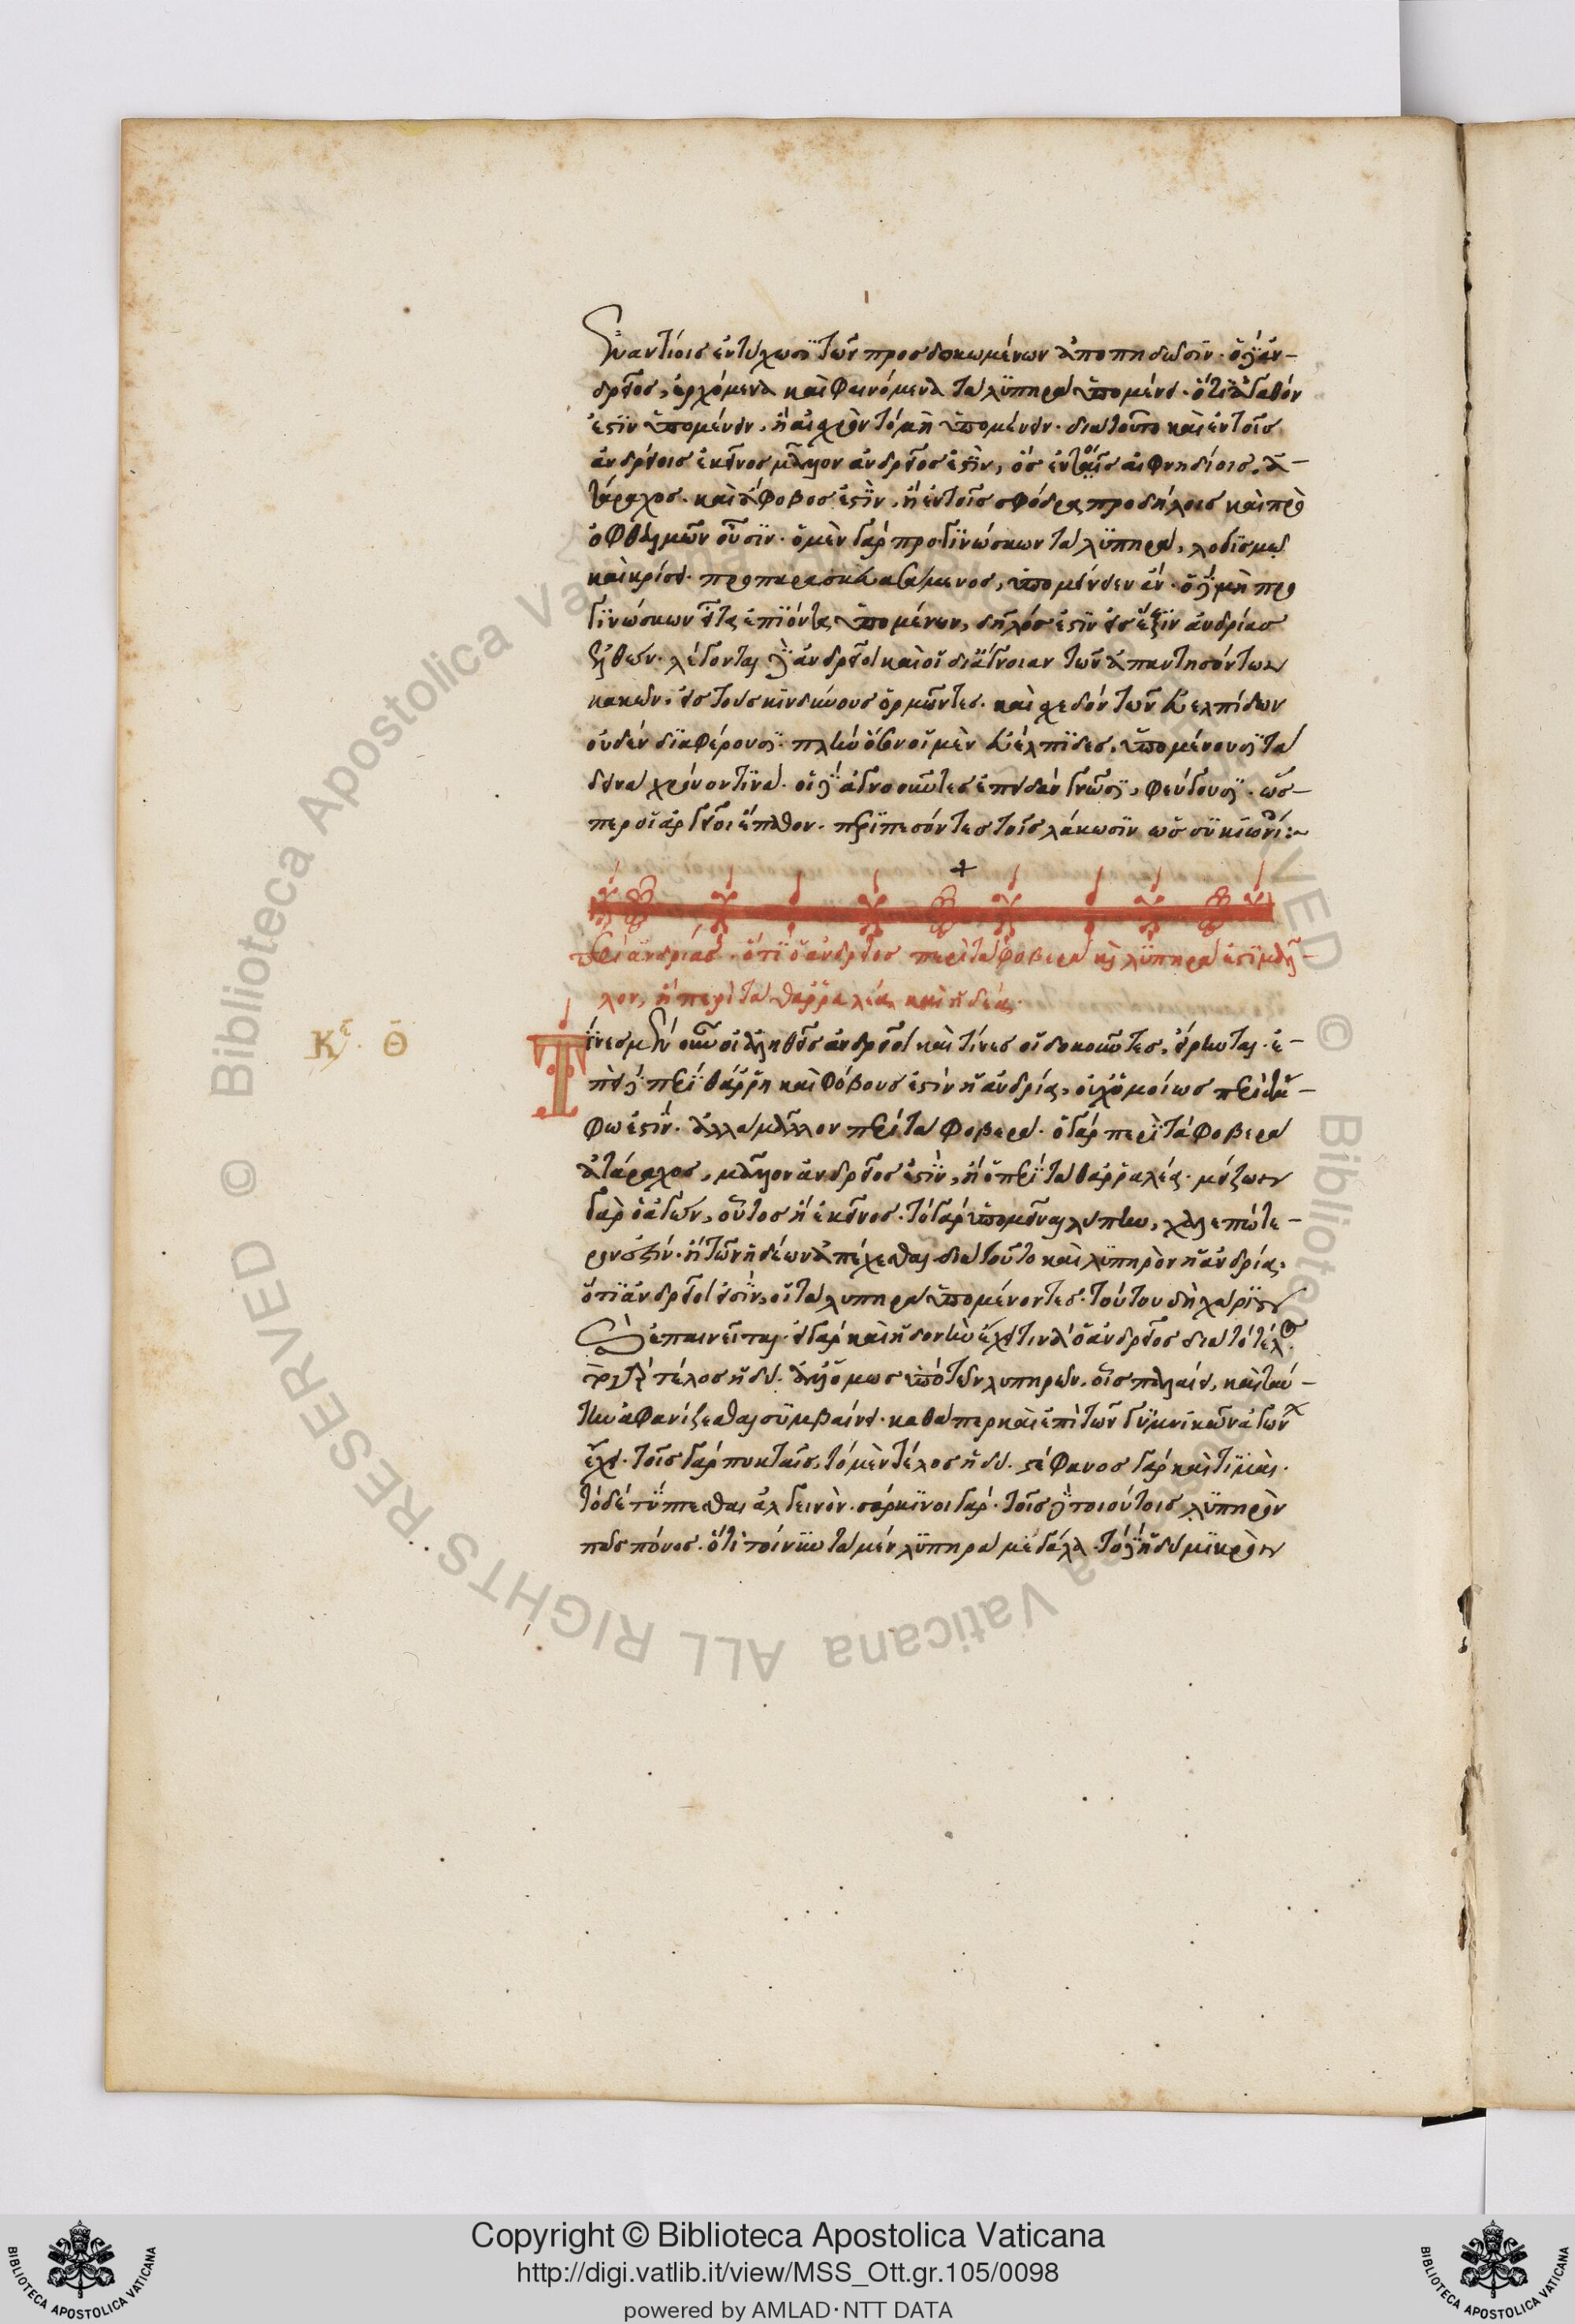 ἐναντίοις ἐντύχωσι τῶν προσδοκωμένων ἀποπηδῶσιν. ὁ δὲ ἀν-
δρεῖος, ἐρχόμενα καὶ φαινόμενα τὰ λυπηρὰ ὑπομένει. ὅτι ἀγαθόν
ἐστιν ὑπομένειν, ἢ αἰσχρὸν τὸ μὴ ὑπομένειν. διὰ τοῦτο καὶ ἐν τοῖς
ἀνδρείοις ἐκεῖνος μᾶλλον ἀνδρεῖος ἐστιν, ὃς ἐν τοῖς αἰφνηδίοις, ἀ-
τάραχος. καὶ ἄφοβος ἐστιν, ἢ ἐν τοῖς σφόδρα προδήλοις καὶ πρὸ
ὀφθαλμῶν οὖσιν. ὁ μὲν γὰρ προγινώσκων τὰ λυπηρὰ, λογισμῶ
καὶ κρίσει προπαρασκευασάμενος, ὑπομένειεν ἄν. ὁ δὲ μὴ προ
γινώσκων εἶτα ἐπιόντα ὑπομένων, δῆλός ἐστιν εἰς ἕξιν ἀνδρίας
ἐλθών. λέγονται δὲ ἀνδρεῖοι καὶ οἱ δι' ἄγνοιαν τῶν ἀπαντησόντων
κακῶν, εἰς τοὺς κινδύνους ὁρμῶντες. καὶ σχεδὸν τῶν εὐελπίδων
οὐδὲν διαφέρουσι. πλὴν ὅσον οἱ μὲν εὐέλπιδες, ὑπομένουσι τὰ
δεινὰ χρόνον τινά. οἱ δὲ ἀγνοοῦντες ἐπειδὰν γνῶσι, φεύγουσι. ὥσ-
περ οἱ ἀργεῖοι ἔπαθον. περιπεσόντες τοῖς λάκωσιν ὡς σικιωνί:~
+
περὶ ἀνδρίας. ὅτι ὁ ἀνδρεῖος περὶ τὰ φοβερὰ καὶ λυπηρὰ ἐστι μᾶλ-
λον, ἢ περὶ τὰ θαρραλέα καὶ ἡδέα.
Κεφ. Θ
Τίνες μὲν οὖν οἱ ἀληθεῖς ἀνδρεῖοι καὶ τίνες οἱ δοκοῦντες, εἴρηται. ἐ-
πεὶ δὲ περὶ θάρρη καὶ φόβους ἐστιν ἡ ἀνδρία, οὐχ ὁμοίως περὶ ἄμ-
φω ἐστιν. ἀλλὰ μᾶλλον περὶ τὰ φοβερά. ὁ γὰρ περὶ τὰ φοβερὰ
ἀτάραχος, μᾶλλον ἀνδρεῖος ἐστιν, ἢ ὁ περὶ τὰ θαρραλέα. μείζων
γὰρ ὁ ἀγὼν, οὗτος ἢ ἐκεῖνος. τὸ γὰρ ὑπομεῖναι λύπην, χαλεπώτε-
ρον ἐστιν. ἢ τῶν ἡδέων ἀπέχεσθαι διὰ τοῦτο καὶ λυπηρὸν ἡ ἀνδρία,
ὅτι ἀνδρεῖοι εἰσιν, οἱ τὰ λυπηρὰ ὑπομένοντες. τούτου δὴ χάριν
καὶ ἐπαινεῖται. εἰ γὰρ καὶ ἡδονὴν ἔχει τινὰ ὁ ἀνδρεῖος διὰ τὸ τέλος
τέλος ἡδύ. ἀλλ' ὅμως ὑπὸ τῶν λυπηρῶν, οἷς παλαίει, καὶ ταύ-
την ἀφανίζεσθαι συμβαίνει. καθάπερ καὶ ἐπὶ τῶν γυμνικῶν ἀγώνων
ἔχει. τοῖς γὰρ πυκταῖς, τὸ μὲν τέλος ἡδύ. στέφανος γὰρ καὶ τιμαί.
τὸ δὲ τύπτεσθαι ἀλγεινόν. σάρκινοι γάρ. τοῖς δὲ τοιούτοις λυπηρὸν
πᾶς πόνος. ὅτι τοίνυν τὰ μὲν λυπηρὰ μεγάλα. τὸ δὲ ἡδὺ μικρὸν
Copyright © Biblioteca Apostolica Vaticana
http://digi.vatlib.it/view/MSS_Ott.gr.105/0098
powered by AMLAD·NTT DATA